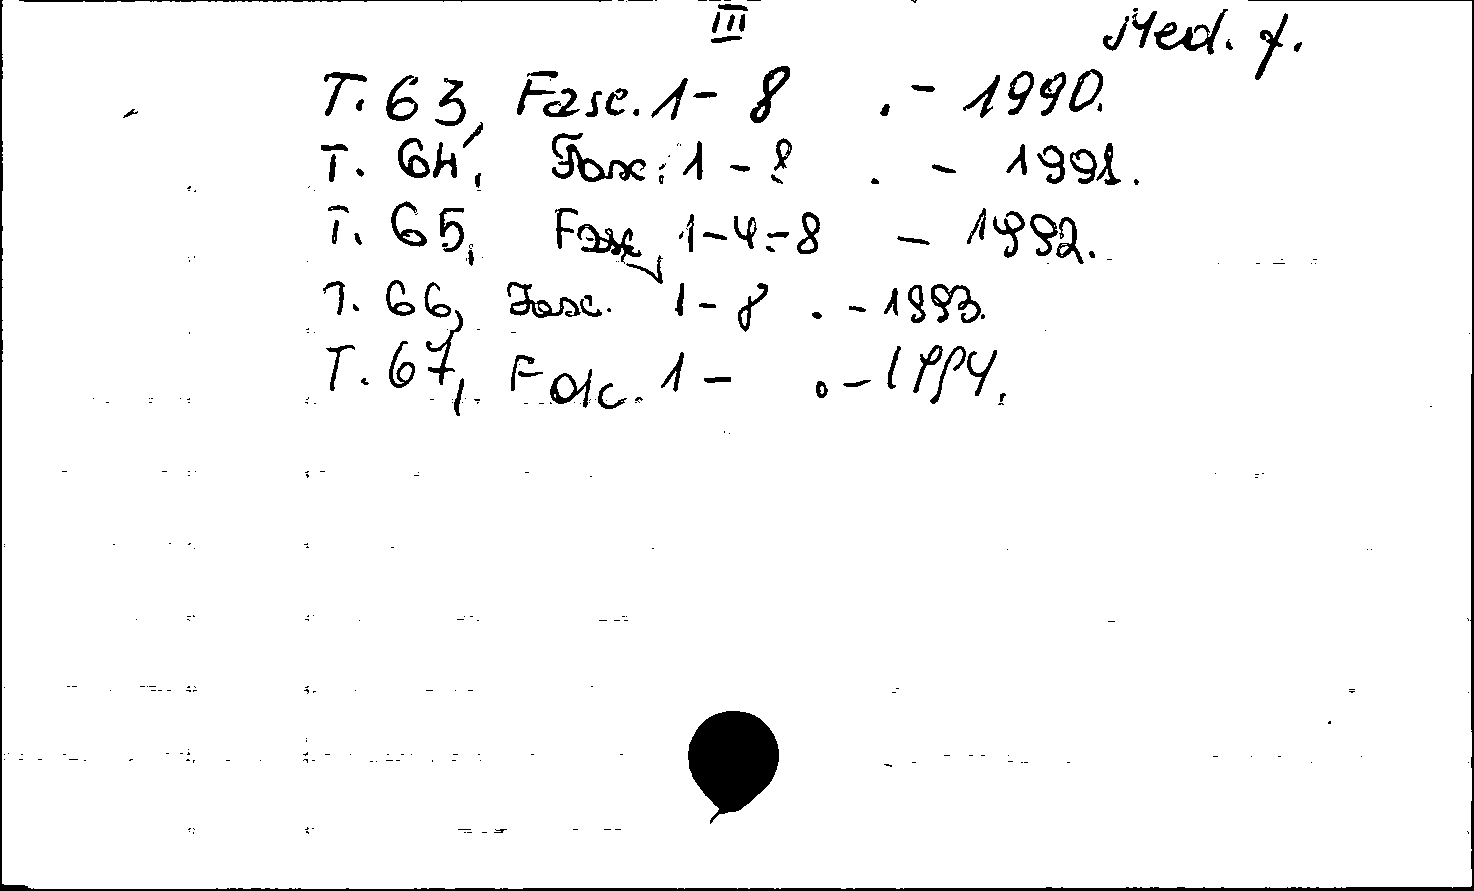 III
Med. f.
T. 63, Fasc. 1 - 8 . - 1990.
T. 64, Fasc. 1 - 8 . - 1991.
T. 65, Fasc. 1-4-8 - 1992.
T. 66, Fasc. 1 - 8 . - 1993.
T. 67, Fasc. 1 - . - 1994.